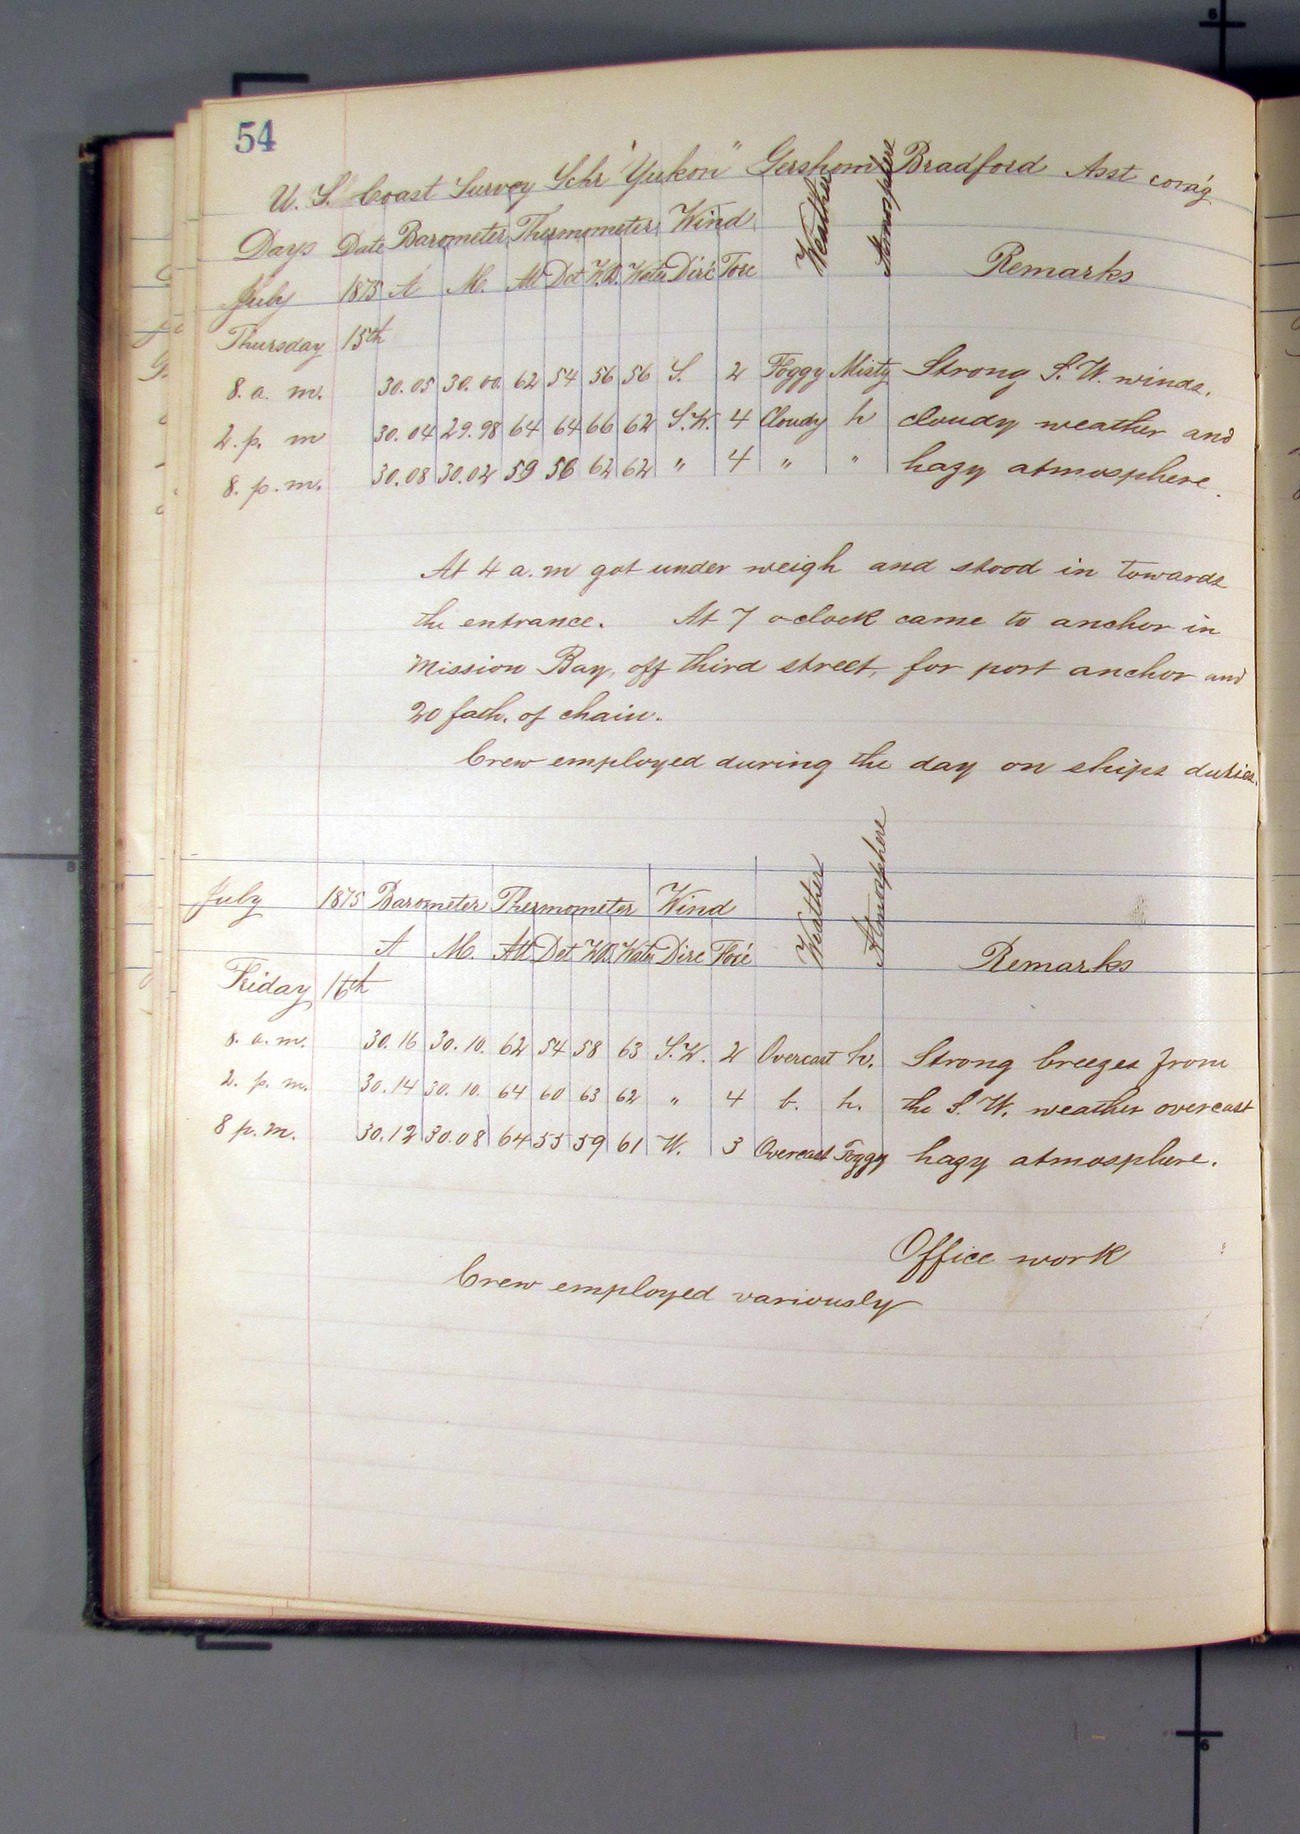 54
U. S. Coast Survey Schr "Yukon" Gershom Bradford Asst com'g
Days Date Barometer Thermometer Wind Weather Atmosphere Remarks
July 1875 A M. Att Det W.B. Water Dirc Forc
Thursday 15th
8. a. m. 30.05 30.00 62 54 56 56 S. 2 Foggy Misty Strong S. W. winds,
2. p. m 30.04 29.98 64 64 66 62 S.W. 4 Cloudy h cloudy weather and
8. p. m. 30.08 30.02 59 56 62 62 " 4 " " hazy atmosphere.
At 4 a. m got under weigh and stood in towards
the entrance. At 7 o-clock came to anchor in
Mission Bay, off third street, for port anchor and
20 fath. of chain.
Crew employed during the day on ships duties.
July 1875 Barometer Thermometer Wind Weather Atmosphere
A M. Att Det W.B. Water Dirc Forc Remarks
Friday 16th
8. a. m. 30.16 30.10. 62 54 58 63 S.W. 2 Overcast h. Strong breezes from
2. p. m. 30.14 30.10. 64 60 63 62 " 4 b. h. the S. W. weather overcast
8 p. m. 30.12 30.08 64 55 59 61 W. 3 Overcast Foggy hazy atmosphere.
Office work
Crew employed variously